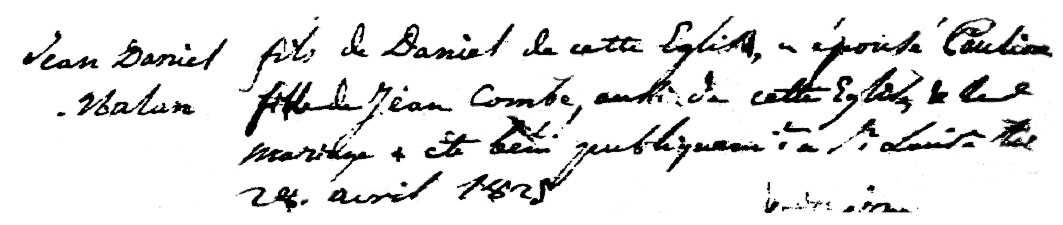 Jean Daniel fils de Daniel de cette Eglise, a épousé Pauline
Malan fille de Jean Combe, aussi de cette Eglise, & le
mariage a été béni publiquemt à St
28. avril 1825